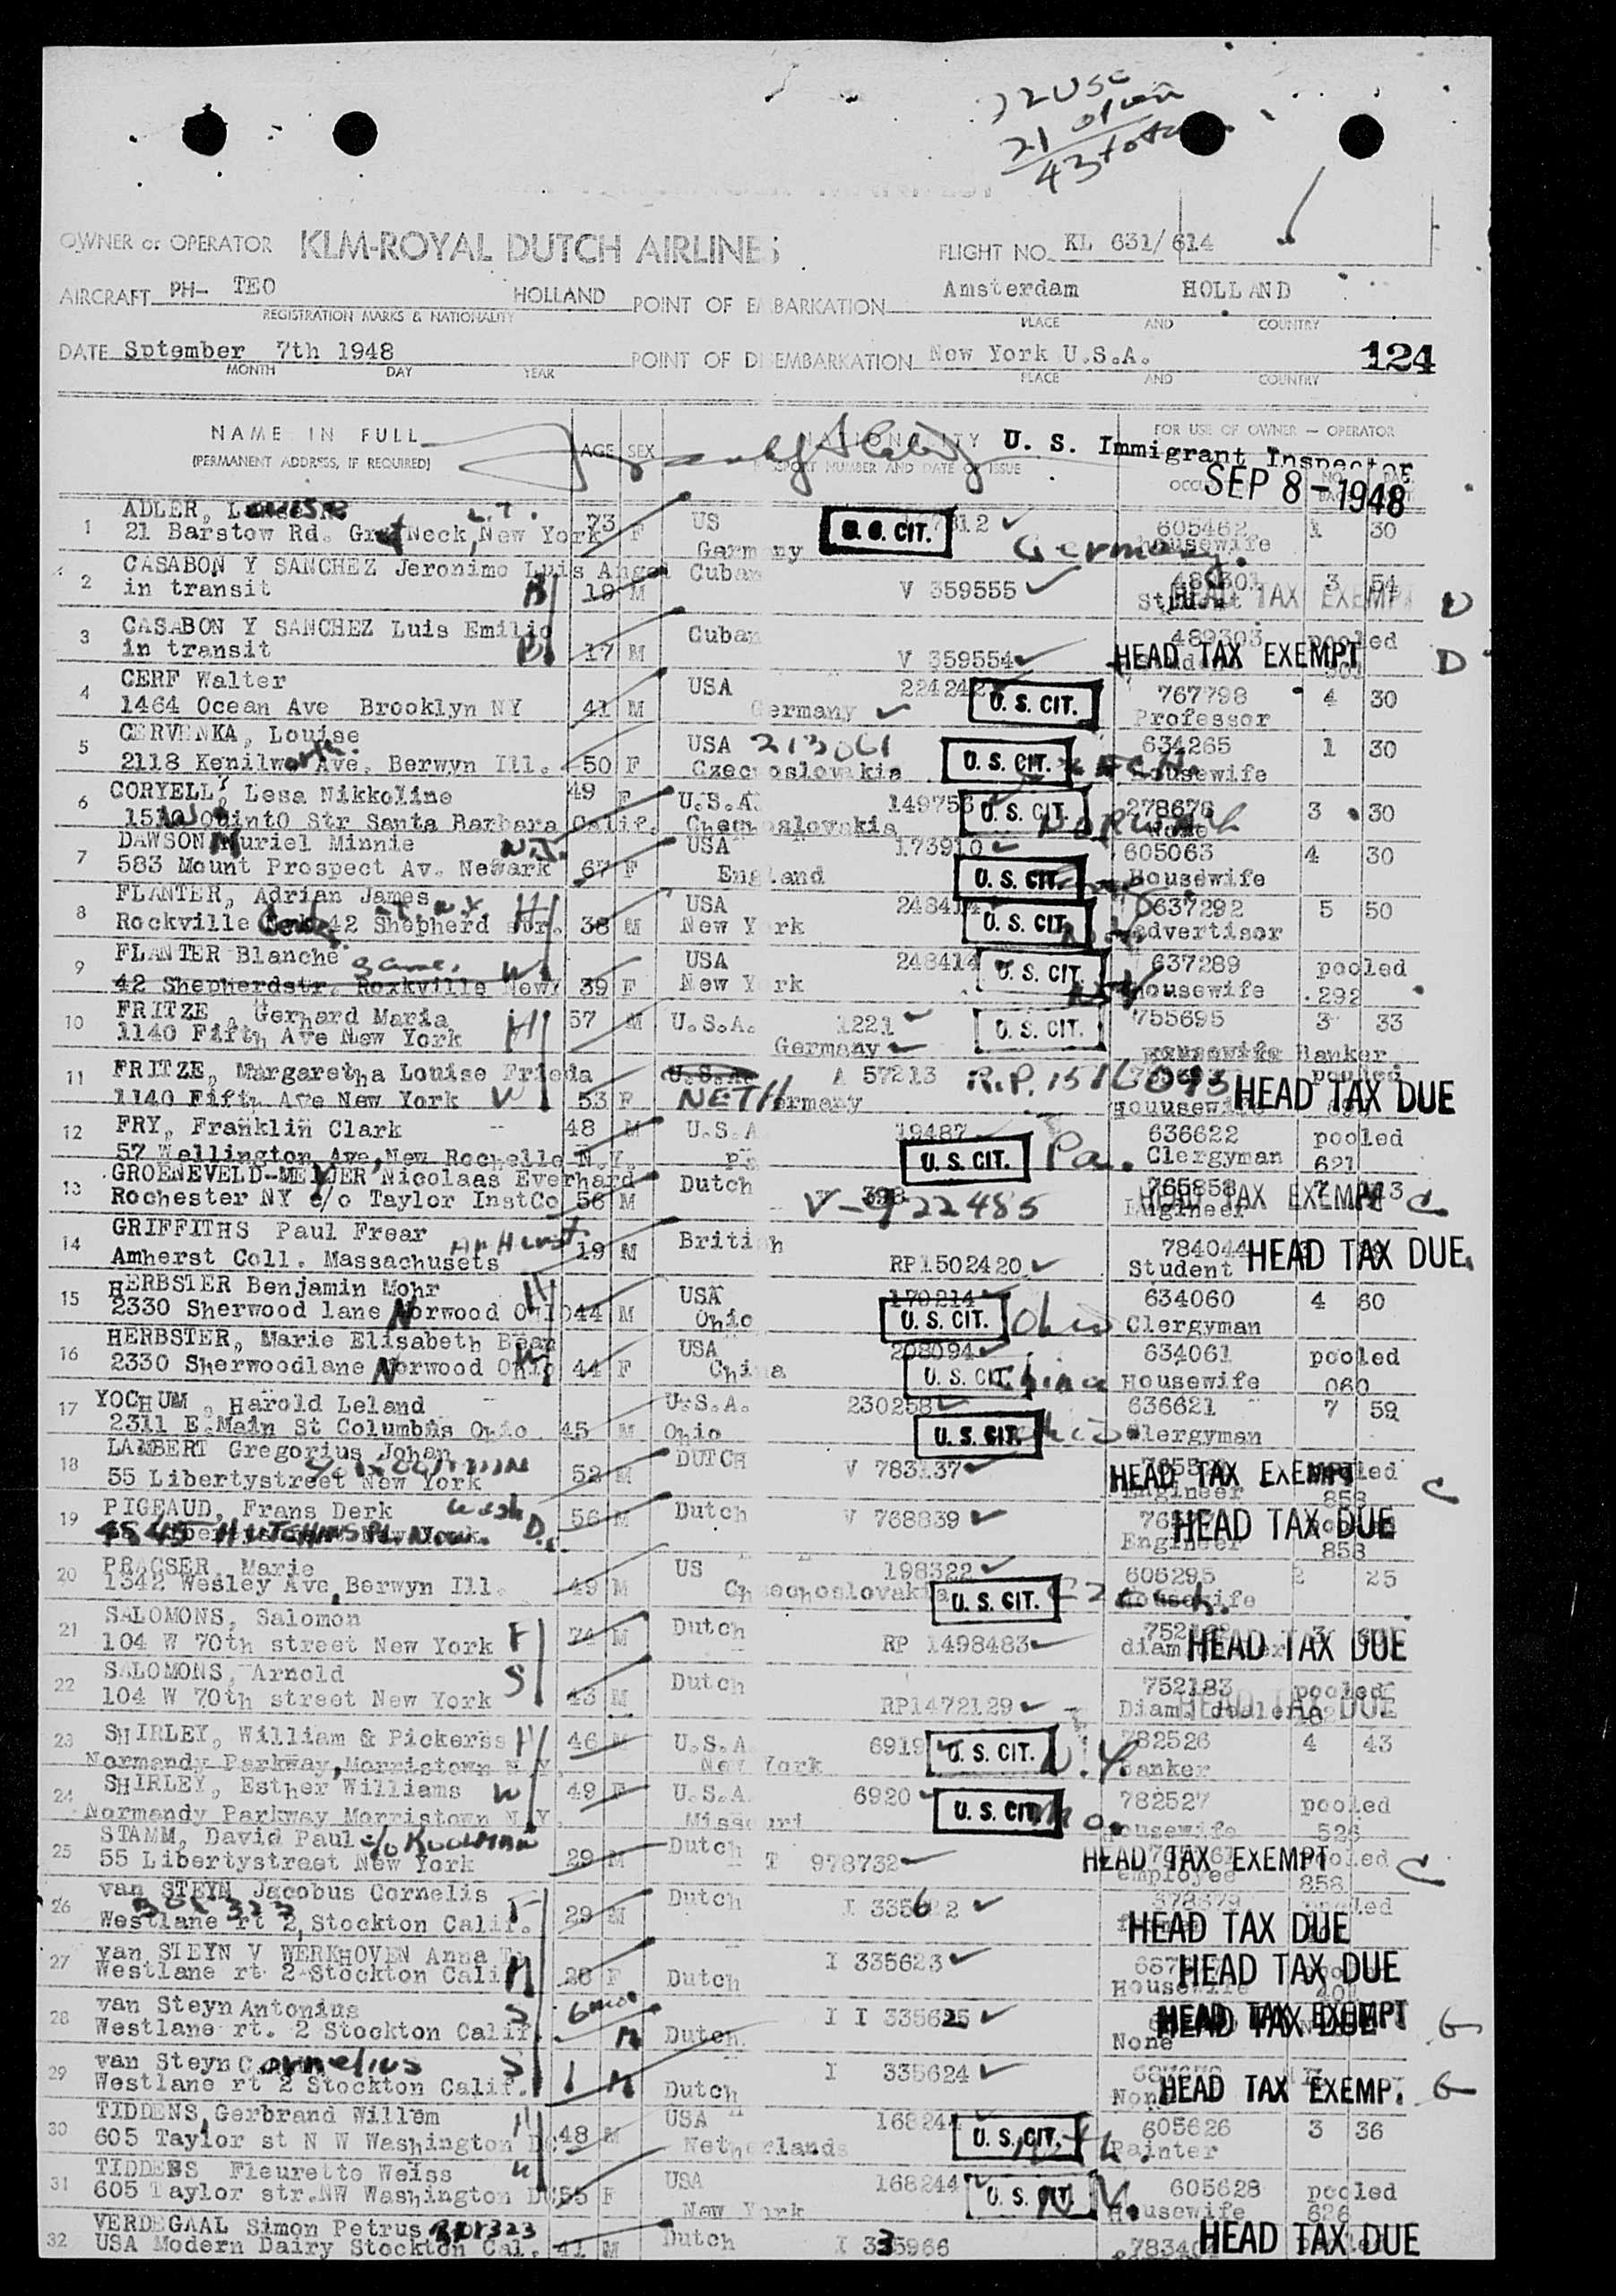 22 USC
21
43 total
OWNER or OPERATOR KLM-ROYAL DUTCH AIRLINES FLIGHT NO. KL 631/614
AIRCRAFT PH- TEO HOLLAND POINT OF EMBARKATION Amsterdam HOLLAND
REGISTRATION MARKS & NATIONALITY PLACE AND COUNTRY
DATE Sptember 7th 1948 POINT OF DISEMBARKATION New York U.S.A. 124
MONTH DAY YEAR PLACE AND COUNTRY
NAME IN FULL AGE SEX NATIONALITY FOR USE OF OWNER — OPERATOR
(PERMANENT ADDRESS, IF REQUIRED) PASSPORT NUMBER AND DATE OF ISSUE
U. S. Immigrant Inspector
SEP 8 - 1948
1 ADLER, Louise 73 F US U. S. CIT. 605462 1 30
21 Barstow Rd. Great Neck, New York Garmany Germany. housewife
2 CASABON Y SANCHEZ Jeronimo Luis Angel Cuban 489301 3 54
in transit 19 M V 359555 Student HEAD TAX EXEMPT D
3 CASABON Y SANCHEZ Luis Emilio Cuban 489303 pooled
in transit 17 M V 359554 HEAD TAX EXEMPT D
4 CERF Walter USA 224242 U. S. CIT. 767798 4 30
1464 Ocean Ave Brooklyn NY 41 M Germany Professor
5 CERVENKA, Louise USA 213061 U. S. CIT. 634265 1 30
2118 Kenilworth Ave. Berwyn Ill. 50 F Czechoslovakia housewife
6 CORYELL, Lesa Nikkoline 49 F U.S.A. 149756 U. S. CIT. 278675 3 30
Str Santa Barbara Calif. Chechoslovakia
7 DAWSON Muriel Minnie N.J. USA 173910 605063 4 30
583 Mount Prospect Av. Newark 67 F England U. S. CIT. Housewife
8 FLANTER, Adrian James H USA U. S. CIT. 637292 5 50
Rockville 42 Shepherd str. 38 M New York Advertisor
9 FLANTER Blanche same. W USA 248414 U. S. CIT. 637289 pooled
42 Shepherdstr. Roxkville New 39 F New York housewife 292
10 FRITZE, Gerhard Maria H 57 M U.S.A. 1221 U. S. CIT. 755695 3 33
1140 Fifth Ave New York Germany housewife Banker
11 FRITZE, Margaretha Louise Frieda U.S.A. A 57213 R.P. 1516093 pooled
1140 Fifth Ave New York W 53 F NETH Germany HEAD TAX DUE
12 FRY, Franklin Clark 48 M U.S.A 19487 636622 pooled
57 Wellington Ave, New Rochelle N.Y. Pa U. S. CIT. Pa. Clergyman 621
13 GROENEVELD-MEYJER Nicolaas Everhard Dutch 765858
Rochester NY c/o Taylor InstCo 56 M V-922485 Engineer HEAD TAX EXEMPT C
14 GRIFFITHS Paul Frear Amherst British 784044 HEAD TAX DUE
Amherst Coll. Massachusets 19 M RP1502420 Student
15 HERBSTER Benjamin Mohr H USA 170214 634060 4 60
2330 Sherwood lane Norwood Ohio 44 M Ohio U. S. CIT. Ohio Clergyman
16 HERBSTER, Marie Elisabeth Bean W USA 208094 634061 pooled
2330 Sherwoodlane Norwood Ohio 44 F China U. S. CIT. China Housewife 060
17 YOCHUM, Harold Leland U.S.A. 230258 636621 7 59
2311 E.Main St Columbus Ohio 45 M Ohio U. S. CIT. Ohio Clergyman
18 LAMBERT Gregorius Johan DUTCH V 783137 HEAD TAX EXEMPT C
55 Libertystreet New York 52 M Engineer 858
19 PIGEAUD, Frans Derk Wash D.C. 56 M Dutch V 768839 HEAD TAX DUE
4545 HUTCHINS PL. N.W. Engineer 858
20 PRACSER, Marie US 198322 606295 2 25
1342 Wesley Ave, Berwyn Ill. 49 M Chzechoslovakia U. S. CIT. Czech. housewife
21 SALOMONS, Salomon F Dutch HEAD TAX DUE
104 W 70th street New York 74 M RP 1498483
22 SALOMONS, Arnold S Dutch 752183 pooled
104 W 70th street New York 43 M RP1472129 Diam. dealer HEAD TAX DUE
23 SHIRLEY, William & Pickerss H 46 M U.S.A 6919 U. S. CIT. N.Y. 782526 4 43
Normandy Parkway, Morristown N Y New York Banker
24 SHIRLEY, Esther Williams W 49 F U.S.A. 6920 U. S. CIT. Mo. 782527 pooled
Normandy Parkway Morristown N Y. Missouri housewife 526
25 STAMM, David Paul c/o KOOLMAN Dutch HEAD TAX EXEMPT C
55 Libertystreet New York 29 M T 978732 employee 858
26 van STEYN Jacobus Cornelis F Dutch I 335622
Box 323
Westlane rt 2, Stockton Calif. 29 M HEAD TAX DUE
27 van STEYN V WERKHOVEN Anna I 335623 HEAD TAX DUE
Westlane rt 2 Stockton Calif 28 F Dutch Housewife
28 van Steyn Antonius S 6 mos I I 335625 HEAD TAX EXEMPT G
Westlane rt. 2 Stockton Calif. M Dutch None HEAD TAX DUE
29 van Steyn Cornelius S 1 M I 335624 HEAD TAX EXEMP. G
Westlane rt 2 Stockton Calif. Dutch None
30 TIDDENS, Gerbrand Willem H USA 168244 U. S. CIT. 605626 3 36
605 Taylor st N W Washington DC 48 M Netherlands Neth. Painter
31 TIDDENS Fleurette Weiss W USA 168244 605628 pooled
605 Taylor str.NW Washington DC 55 F New York U. S. CIT. N.Y. Housewife 626
32 VERDEGAAL Simon Petrus Box 323 Dutch I 335966 HEAD TAX DUE
USA Modern Dairy Stockton Cal. 41 M